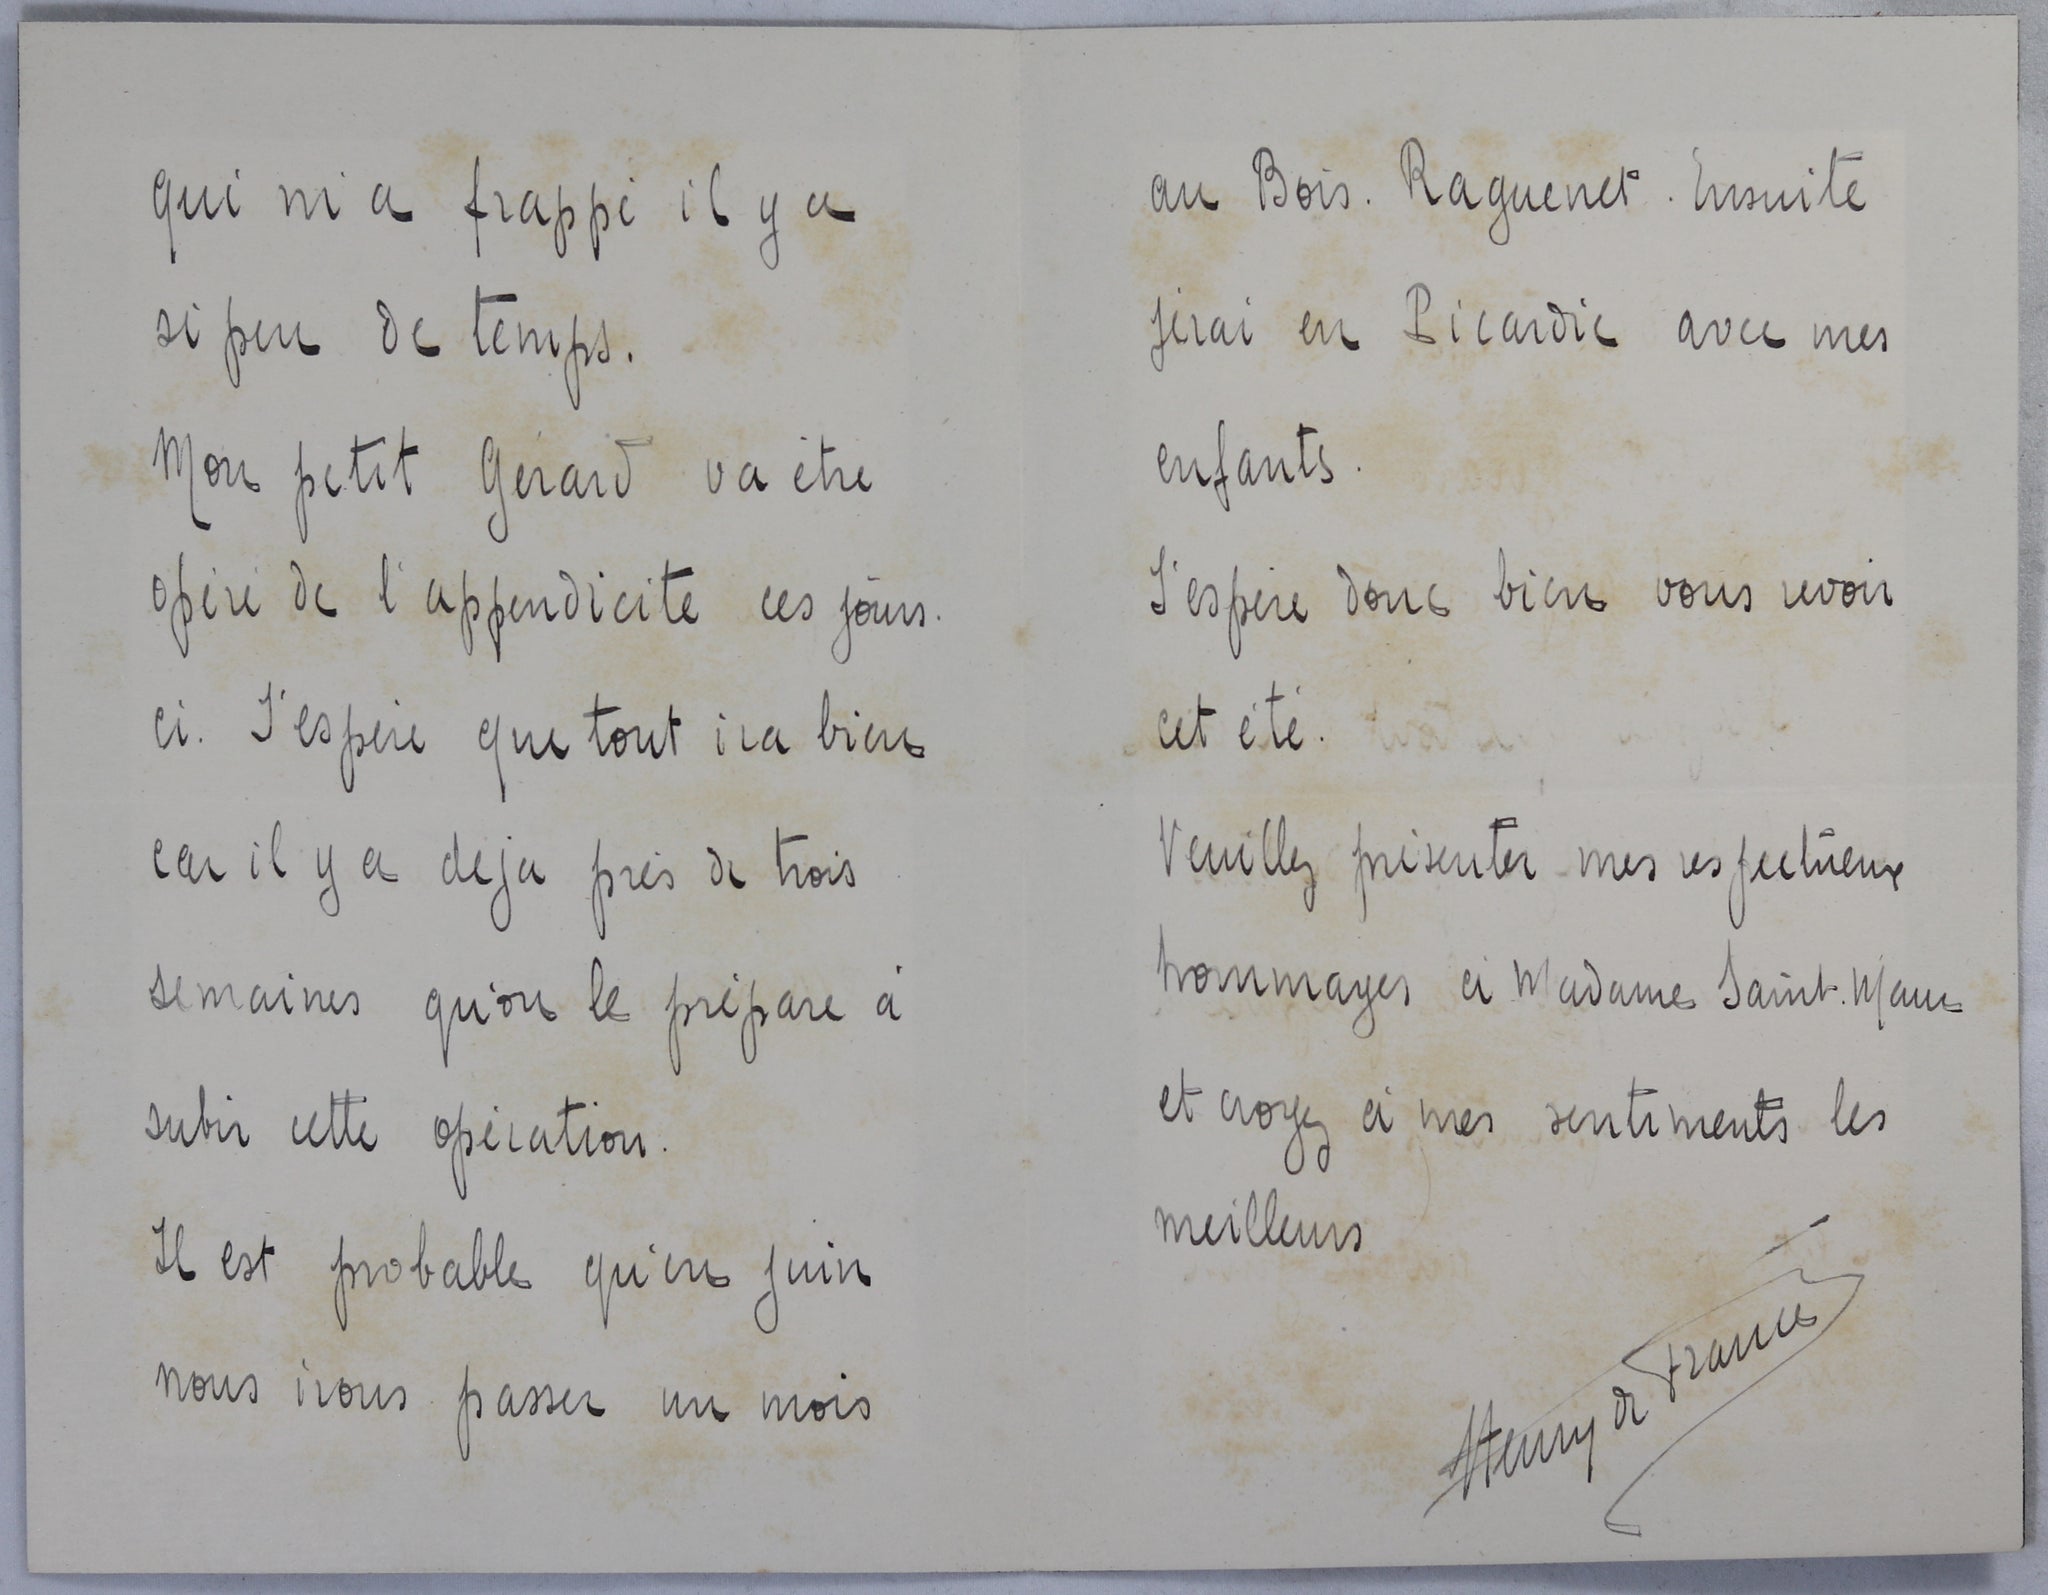 qui m'a frappé il y a
si peu de temps.
Mon petit Gérard va être
opéré de l'appendicite ces jours.
ci. J'espère que tout ira bien
car il y a déja près de trois
semaines qu'on le prépare à
subir cette opération.
Il est probable qu'en juin
nous irons passer un mois
au Bois. Raguenet. Ensuite
j'irai en Picardie avec mes
enfants.
J'espère donc bien vous revoir
cet été.
Veuillez présenter mes respectueux
hommages à Madame Saint. Maur
et croyez à mes sentiments les
meilleurs
Henry de France